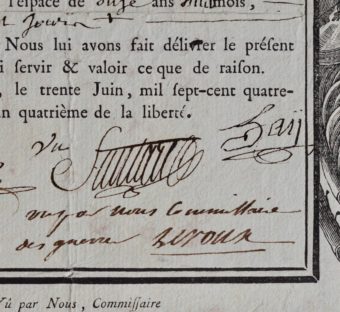 l'espace de onze ans mois,
et jours
Nous lui avons fait délivrer le présent
i servir & valoir ce que de raison.
, le trente Juin, mil sept-cent quatre-
n quatrième de la liberté.
vu
vu par nous Commissaire
des guerres Leroux
Vû par Nous, Commissaire